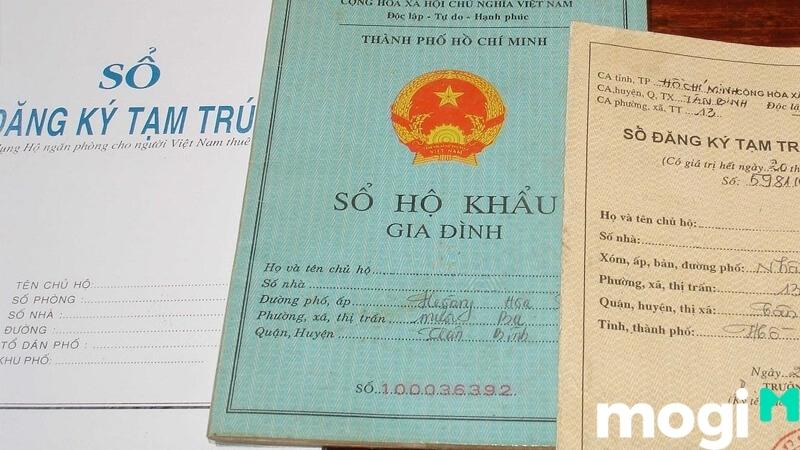 SỔ
ĐĂNG KÝ TẠM TRÚ
Hộ ngăn phòng cho người Việt Nam thuê
TÊN CHỦ HỘ
SỐ PHÒNG :
SỐ NHÀ :
ĐƯỜNG :
TỔ DÂN PHỐ :
KHU PHỐ:
CỘNG HÒA XÃ HỘI CHỦ NGHĨA VIỆT NAM
Độc lập - Tự do - Hạnh phúc
THÀNH PHỐ HỒ CHÍ MINH
VIỆT NAM
SỔ HỘ KHẨU
GIA ĐÌNH
Họ và tên chủ hộ
Số nhà
Đường phố, ấp Hoàng Hoa
Phường, xã, thị trấn mười Ba
Quận, Huyện Tân Bình
SỐ 100036392
CA tỉnh, TP HỒ CHÍ MINH CỘNG HÒA XÃ
CA.huyện, Q, TX TÂN BÌNH Độc lập
CA phường, xã, TT 13
SỔ ĐĂNG KÝ TẠM TRÚ
(Có giá trị hết ngày 20
Số: 5981
Họ và tên chủ hộ:
Số nhà:
Xóm, ấp, bản, đường phố:
Phường, xã, thị trấn: 13
Quận, huyện, thị xã: Tân
Tỉnh, thành phố: Hồ
Ngày 2
TRƯỞNG
(Ký tên
mogi